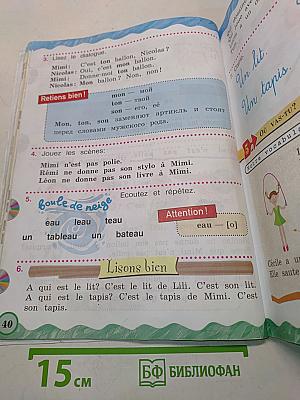 3. Lisez le dialogue.
Mimi: C'est ton ballon, Nicolas?
Nicolas: Oui, c'est mon ballon.
Mimi: Donne-moi ton ballon.
Nicolas: Mon ballon? Non, non!
Retiens bien!
mon — мой
ton — твой
son — его, её
Mon, ton, son заменяют артикль и стоят
перед словами мужского рода.
4. Jouez les scènes:
Mimi n'est pas polie.
Rémi ne donne pas son stylo à Mimi.
Léon ne donne pas son livre à Mimi.
5. Ecoutez et répétez.
Boule de neige
eau leau teau
un tableau un bateau
Attention!
eau — [o]
6. Lisons bien
A qui est le lit? C'est le lit de Lili. C'est son lit.
A qui est le tapis? C'est le tapis de Mimi. C'est
son tapis.
40
Un lit.
Un tapis.
OU VAS-TU?
Cécile a u
Elle saute
15 см
БФ БИБЛИОФАН